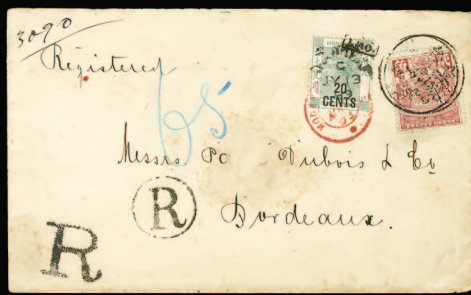 3090
Registered
C
JY 3
20
CENTS
65
Messrs Po Dubois & Co
R
Bordeaux.
R